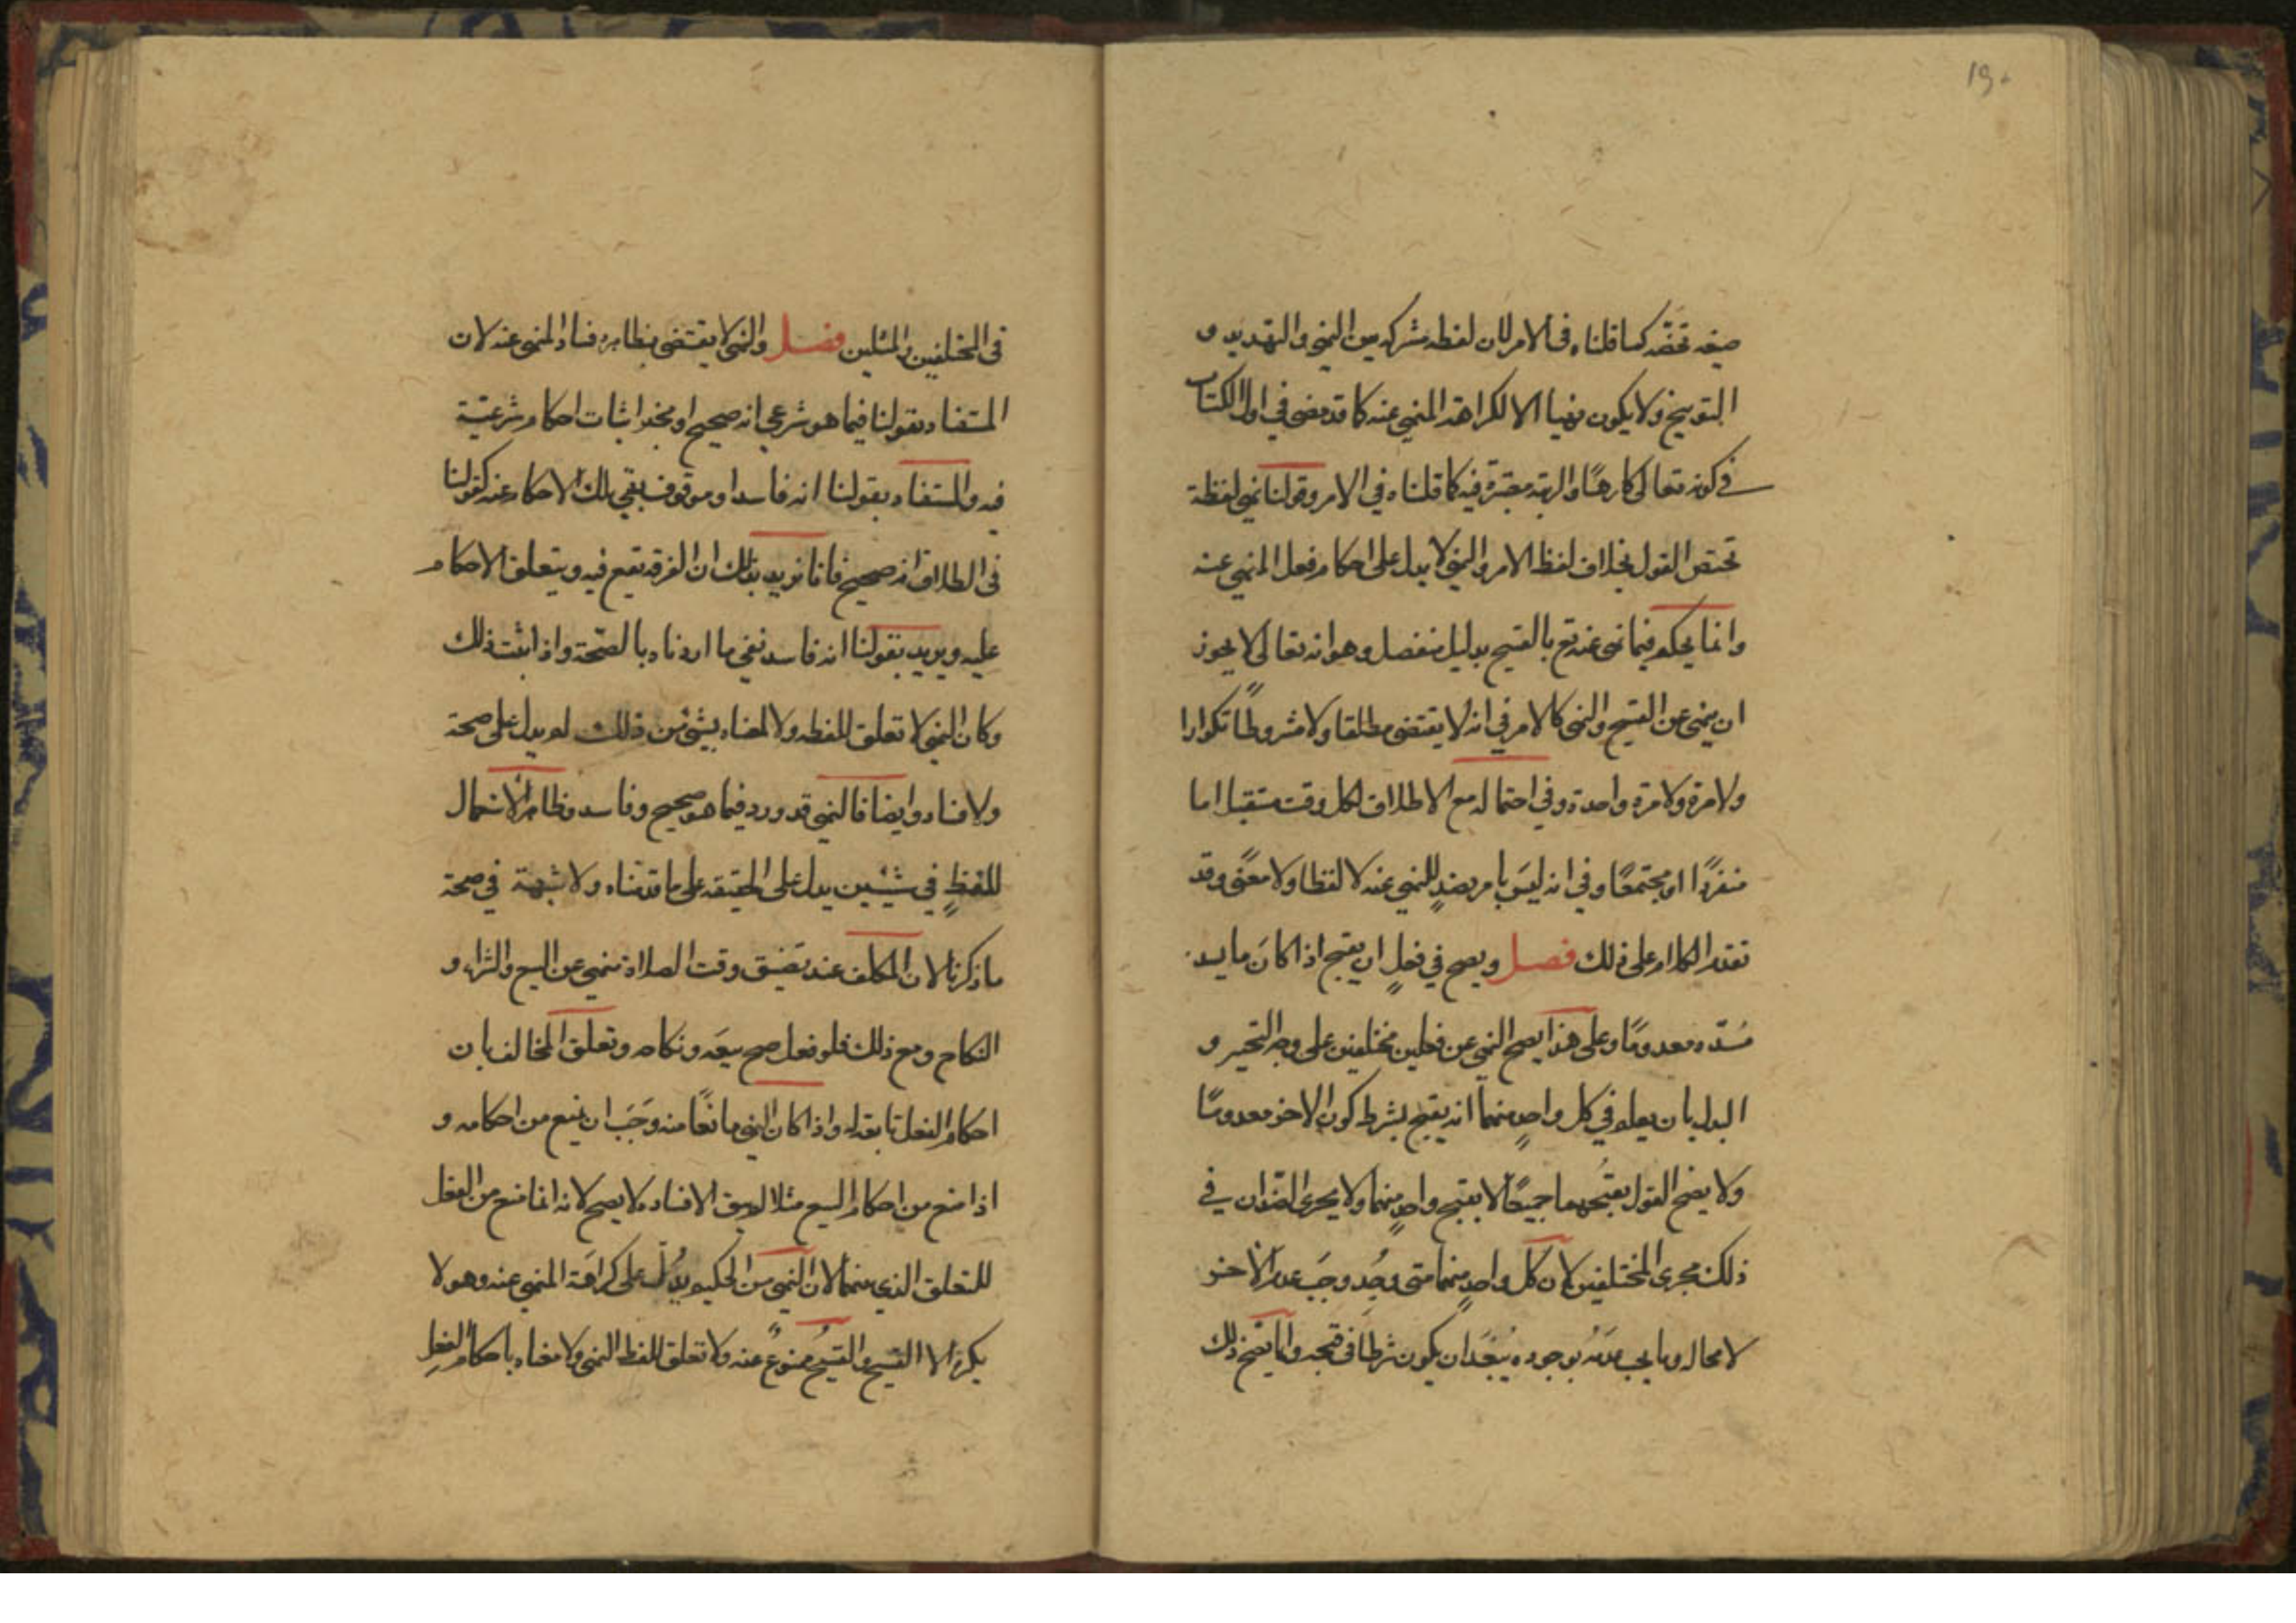 ١٩٠
صيغه تخصّه كما قلناه في الامر لان لفظه مشتركه بين النهي والتهديد و
التوبيخ ولا يكون نهيا الا لكراهة المنهي عنه كما قد مضى في اول الكتاب
في كونه تعالى كارهًا والرتبه معتبرة فيه كما قلناه في الامر وقولنا نهي لفظة
تختص القول بخلاف لفظ الامر والنهي لا يدل على احكام فعل المنهي عنه
وانما يحكم فيما نهى عنه تع بالقبيح بدليل منفصل وهو انه تعالى لا يجوز
ان ينهى عن القبيح والنهي كالامر في انه لا يقتضى مطلقا ولا مشروطًا تكرارا
ولا مرة ولا مرة واحدة وفي احتماله مع الاطلاق لكل وقت مستقبل اما
منفردًا او مجتمعًا وفي انه ليسَ بامر بضدٍ للمنهي عنه لا لفظا ولا معنًى وقد
تقدم الكلام على ذلك فصل ويصح في فعلٍ ان يقبح اذا كانَ ما يسد
مَسّده معدومًا وعلى هذا يصح النهي عن فعلين مختلفين على وجه التخيير و
البدل بان يعلم في كل واحدٍ منهما انه يقبح بشرط كون الاخر معدومًا
ولا يصح القول بقبُحهما جميعًا لا بقبح واحدٍ منهما ولا يجرى الضّدان في
ذلك مجرى المختلفين لان كل واحدٍ منهما متى وُجد وجَبَ عدم الآخر
لا محاله وما يجب عدَمُه بوجوده يَبعَد ان يكون شرطًا في قبحه وانما يصّح ذلك
في المختلفين والمثلين فصل والنهي لا يقتضى بظاهره فساد المنهي عنه لان
المستفاد بقولنا فيما هو شرعي انه صحيح او مجز اثبات احكام شرعيّة
فيه والمستفاد بقولنا انه فاسد او موقوف بقي تلك الاحكام عنه كقولنا
في الطلاق انه صحيح فانا نريد بذلك ان الفرقه تقع فيه ويتعلق الاحكام
عليه ويريد بقولنا انه فاسد نفي ما اردناه بالصّحة واذا ثبت ذلك
وكان النهي لا تعلق للفظه ولا لمعناه بشيء من ذلك لم يدل على صحة
ولا فساد وايضا فالنهي قد ورد فيما هو صحيح وفاسد وظاهر الاستعمال
للفظٍ في شيئين يدل على الحقيقه على ما قدمناه ولا شبهة في صحة
ما ذكرنا لان المكلف عند تضيق وقت الصلاة منهي عن البيع والشراء و
النكاح ومع ذلك فلو فعل صح بيعَه ونكاحه وتعلق المخالف بان
احكام الفعل تابعة له واذا كان النهي مانعًا منه وَجَبَ ان يمنع من احكامه و
اذا منع من احكام البيع مثلا لم يبق الا فساده لا يصح لانه انما منع من الفعل
للتعلق الذي بينهما لان النهي من الحكيم يدُلّ على كراهَة المنهي عنه وهو لا
يكره الا القبيح والقبيحُ ممنوعٌ منه ولا تعلق للفظ النهي ولا معناه باحكام الفعلِ